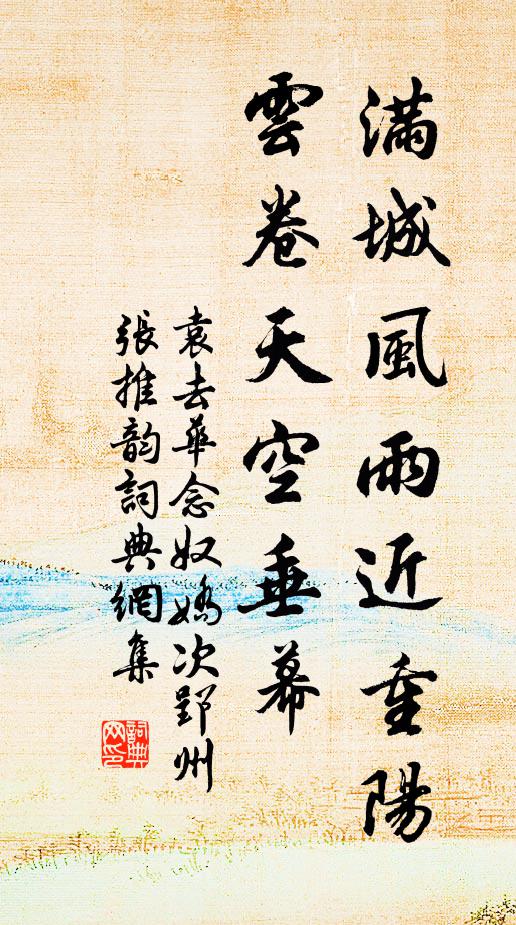 滿城風雨近重陽
雲卷天空垂幕
袁去華念奴嬌次郢州
張推韵詞典網集
詞典
网印